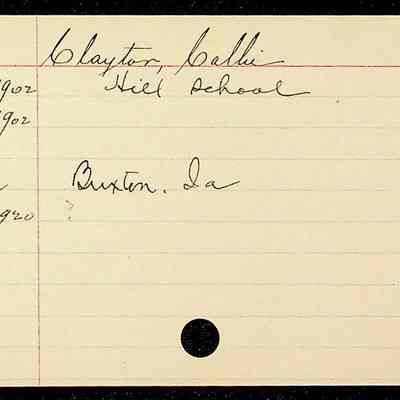 Clayton, Callie
902 Hill school
902
Buxton. Ia
?
920